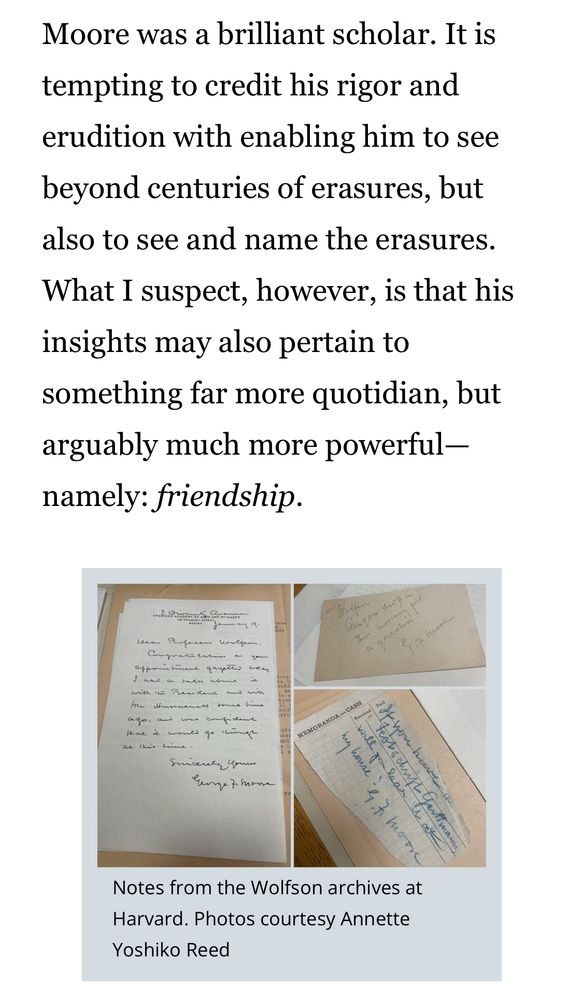 Moore was a brilliant scholar. It is
tempting to credit his rigor and
erudition with enabling him to see
beyond centuries of erasures, but
also to see and name the erasures.
What I suspect, however, is that his
insights may also pertain to
something far more quotidian, but
arguably much more powerful—
namely: friendship.
January 19.
Dear Professor Wolfson,
Congratulations on your
appointment gazetted today.
I had a talk about it
with the President and with
Mr Hurmence some time
ago, and was confident
that it would go through
at this time.
Sincerely yours
George F. Moore
Wolfson
drop in
this morning for
a question
G F Moore
MEMORANDA OF CASH
If you have a
Festschrift Guttmann
will you leave it at
my house? G. F. Moore
Notes from the Wolfson archives at
Harvard. Photos courtesy Annette
Yoshiko Reed